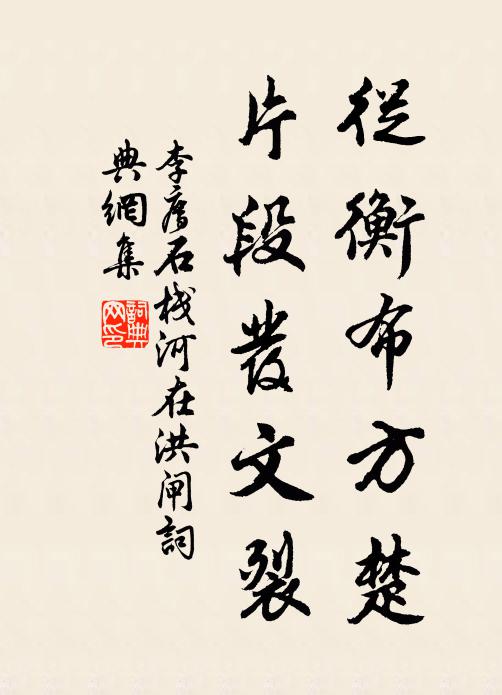 從衡布方楚
片段發文裂
李廌石栈河在洪闸詞
典網集
詞典
网印